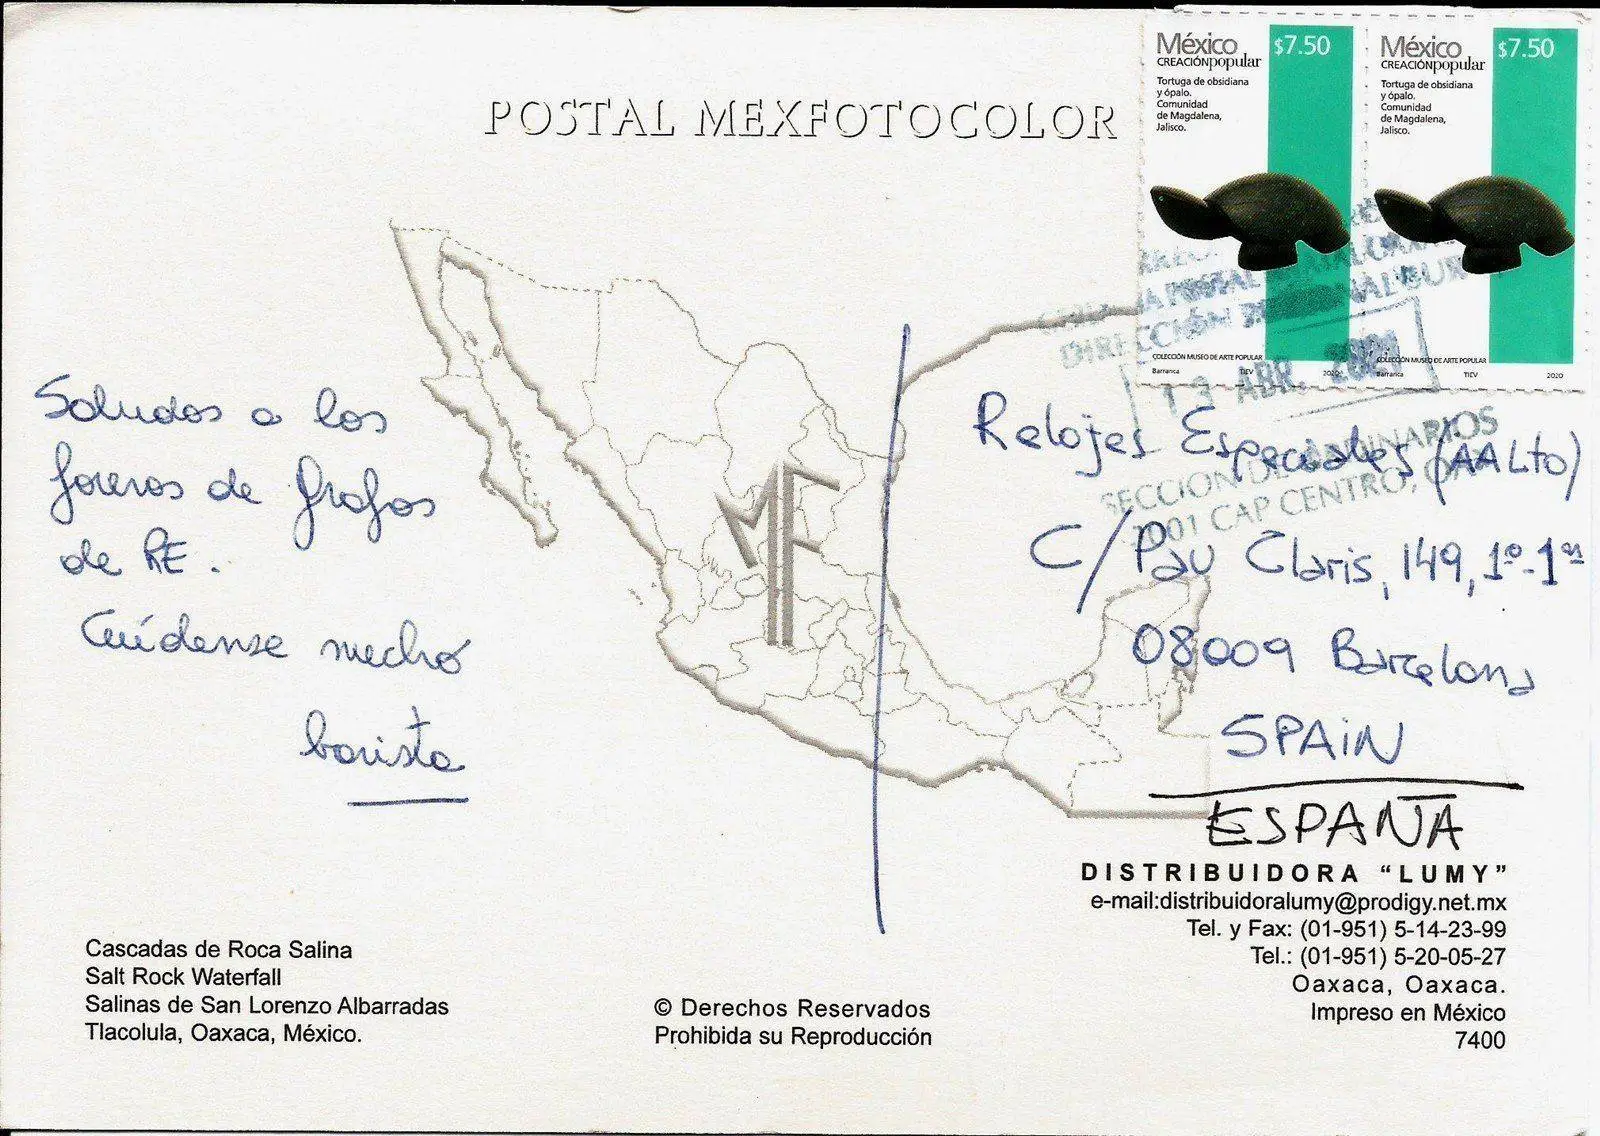 POSTAL MEXFOTOCOLOR
México
CREACIÓNpopular
$7.50
Tortuga de obsidiana
y ópalo.
Comunidad
de Magdalena,
Jalisco.
COLECCIÓN MUSEO DE ARTE POPULAR
Barranca TIEV 2020
México
CREACIÓNpopular
$7.50
Tortuga de obsidiana
y ópalo.
Comunidad
de Magdalena,
Jalisco.
COLECCIÓN MUSEO DE ARTE POPULAR
Barranca TIEV 2020
DIRECCIÓN
13 ABR. 2021
SECCION DE ORDINARIOS
CAP CENTRO,
Saludos a los
foreros de Grafos
de RE.
Cuídense mucho
barista
MF
Relojes Especiales (AALto)
C/ Pau Claris, 149, 1º-1ª
08009 Barcelona
SPAIN
ESPAÑA
DISTRIBUIDORA “LUMY”
e-mail:distribuidoralumy@prodigy.net.mx
Tel. y Fax: (01-951) 5-14-23-99
Tel.: (01-951) 5-20-05-27
Oaxaca, Oaxaca.
Impreso en México
7400
Cascadas de Roca Salina
Salt Rock Waterfall
Salinas de San Lorenzo Albarradas
Tlacolula, Oaxaca, México.
© Derechos Reservados
Prohibida su Reproducción